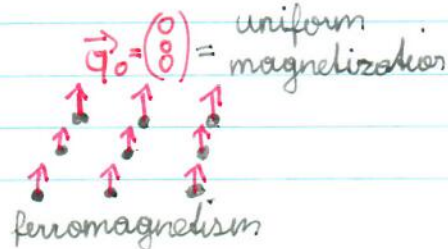 q⃗₀ = (0 0 0) = uniform
magnetization
ferromagnetism